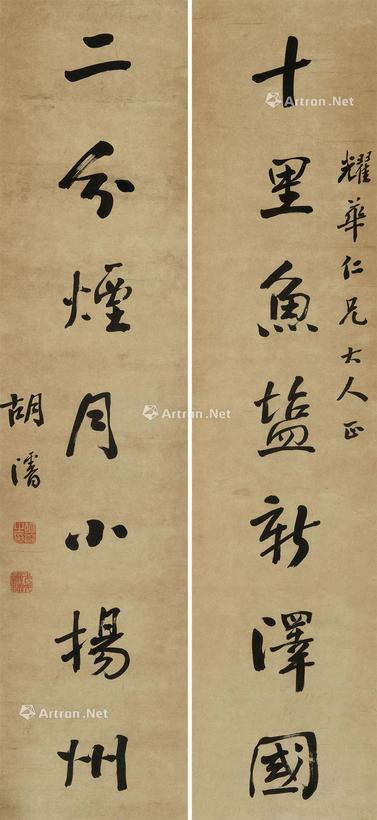 耀華仁兄大人正
十里魚塩新澤國
二分煙月小揚州
胡濬
Artron.Net
Artron.Net
Artron.Net
Artron.Net